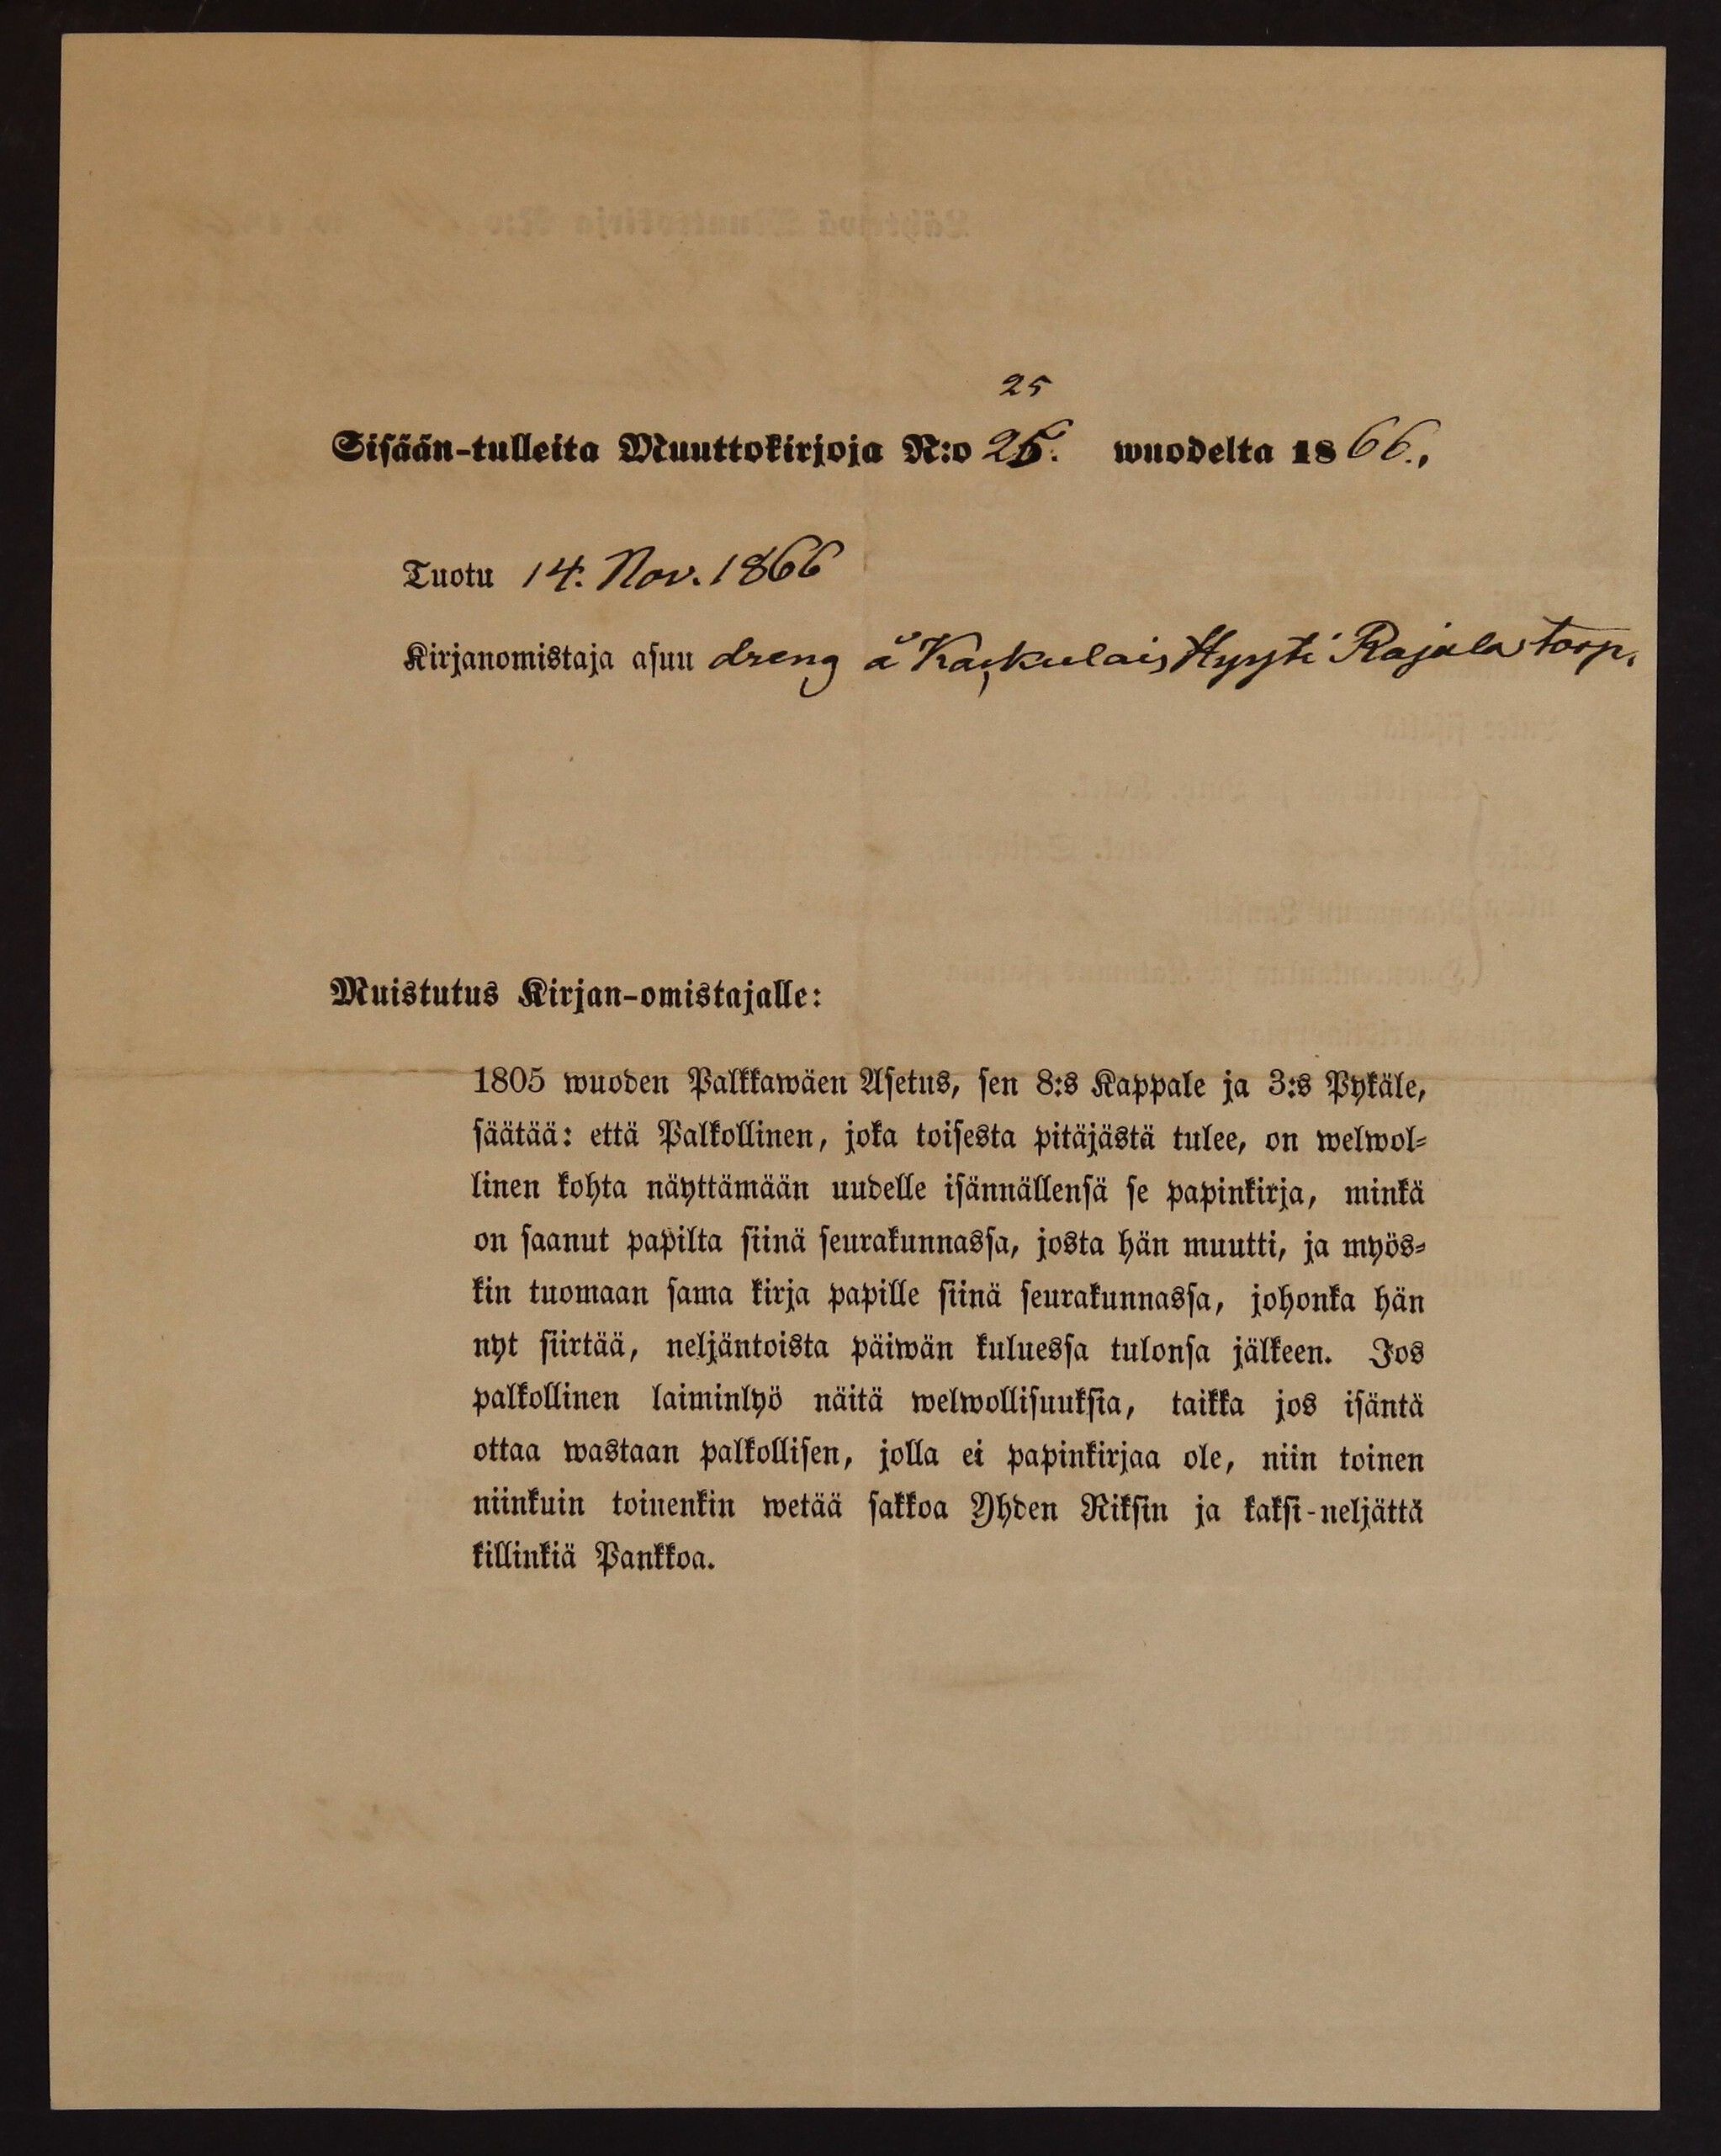 25
Sisään-tulleita Muuttokirjoja N:o 25. wuodelta 1866.,
Tuotu 14. Nov. 1866
Kirjanomistaja asuu dreng å Kaskulais Hyyti Rajala torp.
Muistutus Kirjan-omistajalle:
1805 wuoden Palkkawäen Asetus, sen 8:s Kappale ja 3:s Pykäle,
säätää: että Palkollinen, joka toisesta pitäjästä tulee, on welwol-
linen kohta näyttämään uudelle isännällensä se papinkirja, minkä
on saanut papilta siinä seurakunnassa, josta hän muutti, ja myös-
kin tuomaan sama kirja papille siinä seurakunnassa, johonka hän
nyt siirtää, neljäntoista päiwän kuluessa tulonsa jälkeen. Jos
palkollinen laiminlyö näitä welwollisuuksia, taikka jos isäntä
ottaa wastaan palkollisen, jolla ei papinkirjaa ole, niin toinen
niinkuin toinenkin wetää sakkoa Yhden Riksin ja kaksi-neljättä
killinkiä Pankkoa.